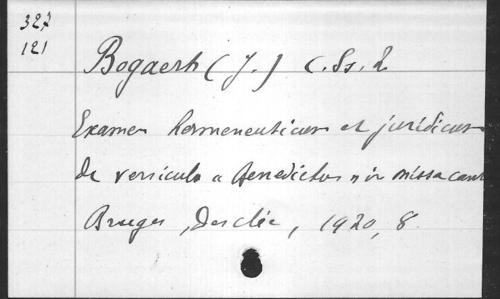 327
121
Bogaert (J.) C.Ss.R
Examen hermeneuticum et juridicum
de versiculo « Benedictus » in missa cant
Bruges, Desclée, 1920, 8.